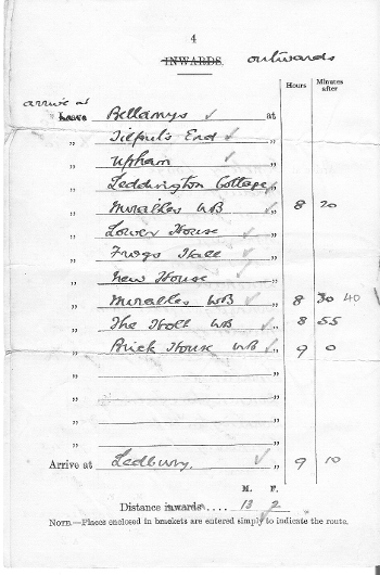 4
INWARDS. outwards
Hours Minutes after
arrive at
Leave Bellamys ✓ at
„ Tilputs End ✓ „
„ Upham ✓ „
„ Leddington Cottage ✓ „
„ Miralles WB ✓ „ 8 20
„ Lower House ✓ „
„ Frogs Hall ✓ „
„ New House ✓ „
„ Miralles WB ✓ „ 8 30 40
„ The Holt WB ✓ „ 8 55
„ Brick House WB ✓ „ 9 0
„ „
„ „
„ „
„ „
Arrive at Ledbury. ✓ „ 9 10
M. F.
Distance inwards.... 13 2
NOTE.—Places enclosed in brackets are entered simply to indicate the route.